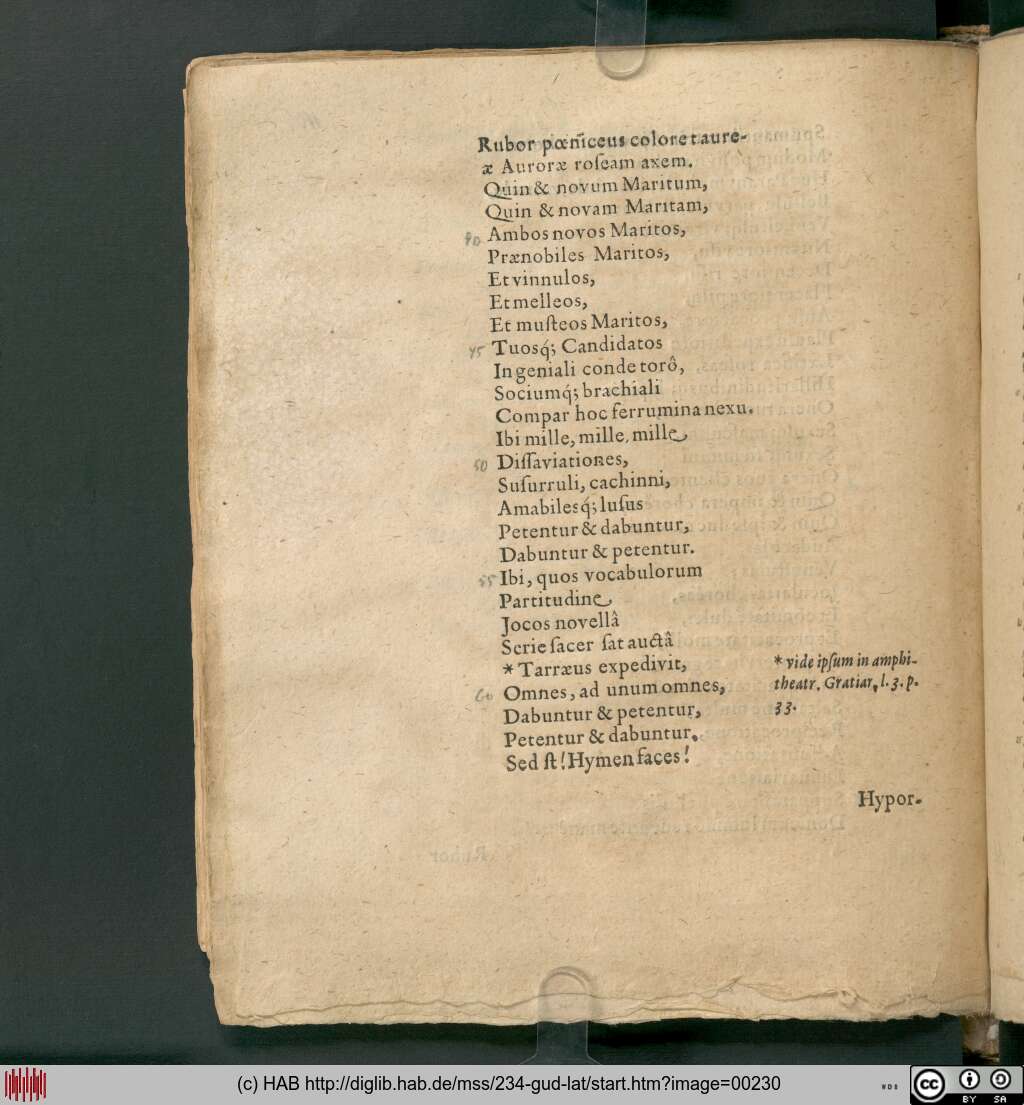 Rubor pœniceus coloret aure-
æ Auroræ roſeam axem.
Quin & novum Maritum,
Quin & novam Maritam,
40 Ambos novos Maritos,
Prænobiles Maritos,
Et vinnulos,
Et melleos,
Et muſteos Maritos,
45 Tuosq́; Candidatos
In geniali conde torô,
Sociumq́; brachiali
Compar hoc ferrumina nexu.
Ibi mille, mille, mille
50 Diſſaviationes,
Suſurruli, cachinni,
Amabilesq́; luſus
Petentur & dabuntur,
Dabuntur & petentur.
55 Ibi, quos vocabulorum
Partitudine
Jocos novellâ
Serie ſacer ſat auctâ
* Tarræus expedivit,
60 Omnes, ad unum omnes,
Dabuntur & petentur,
Petentur & dabuntur.
Sed ſt! Hymen faces!
* vide ipſum in amphi-
theatr. Gratiar. l. 3. p.
33.
Hypor-
(c) HAB http://diglib.hab.de/mss/234-gud-lat/start.htm?image=00230
WDB
cc BY SA